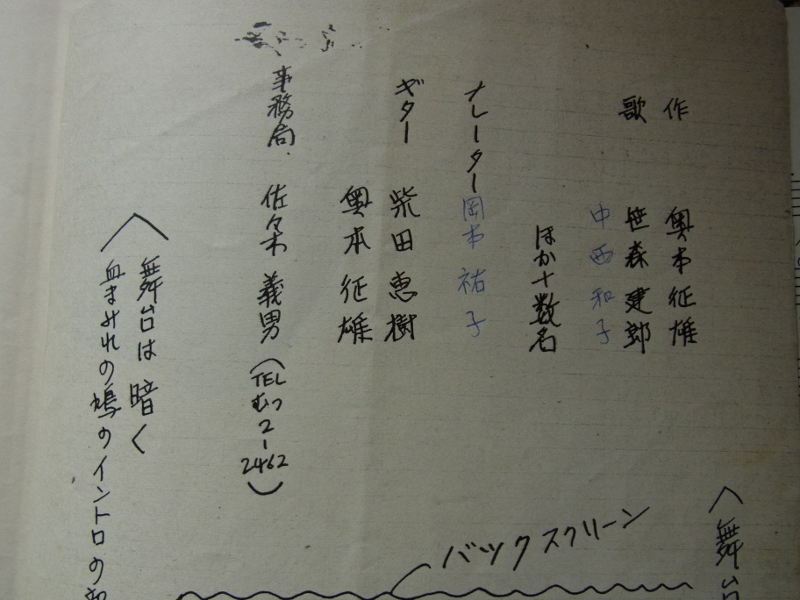 作　奥本征雄
歌　笹森建郎
中西和子
ほか十数名
ナレーター　岡本祐子
ギター　柴田恵樹
奥本征雄
事務局　佐々木義男（TELむつ2-2462）
舞台は暗く
血まみれの鳩のイントロの
バックスクリーン
舞台